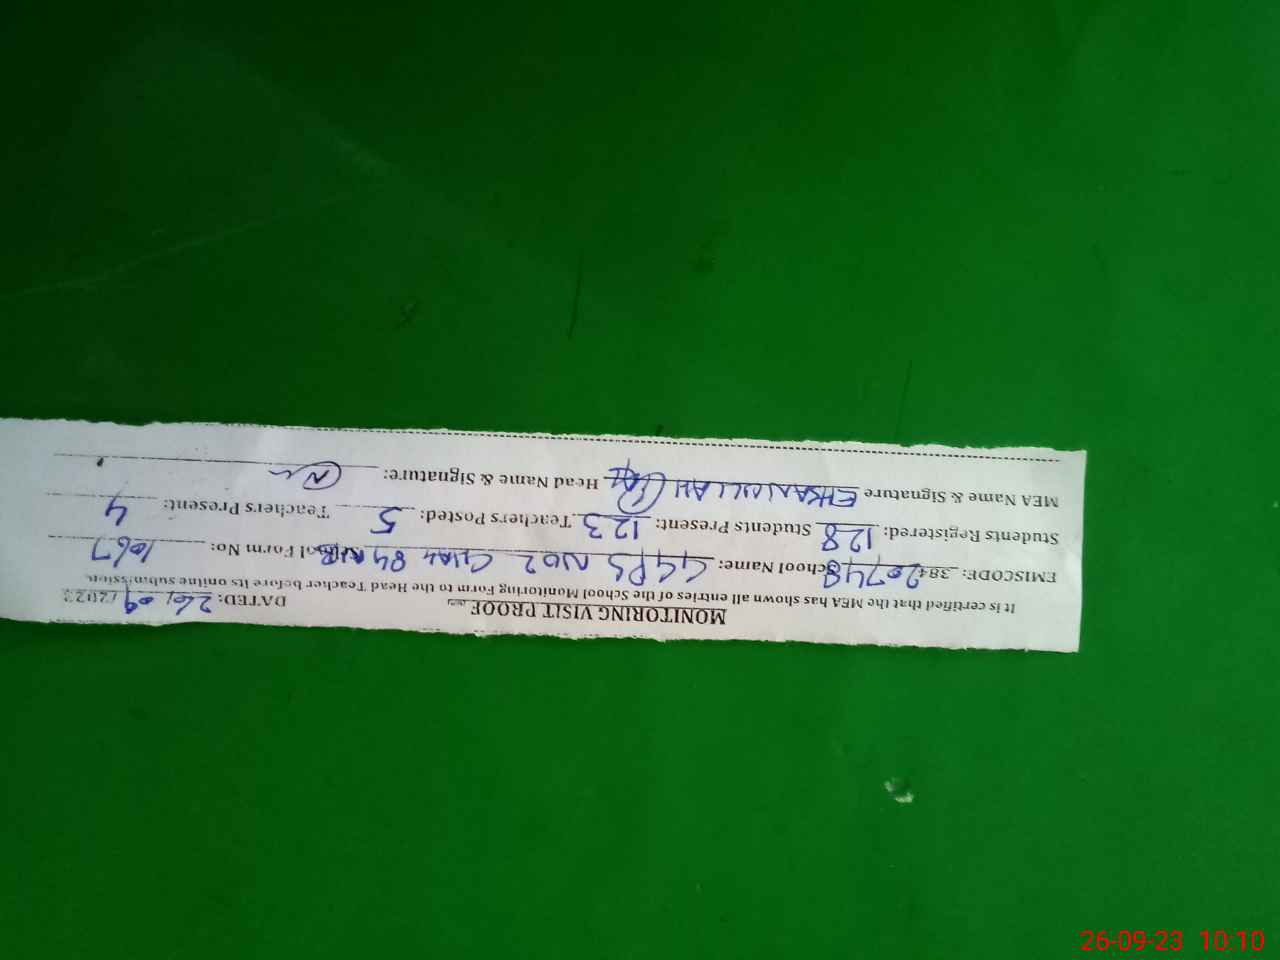 MONITORING VISIT PROOF DATED: 26/09/2023
It is certified that the MEA has shown all entries of the School Monitoring Form to the Head Teacher before its online submission.
EMISCODE: 384 20748 School Name: GGPS NO2 CHAK 84 NB School Form No: 1067
Students Registered: 128 Students Present: 123 Teachers Posted: 5 Teachers Present: 4
MEA Name & Signature EHSAN ULLAH Head Name & Signature:
26-09-23 10:10